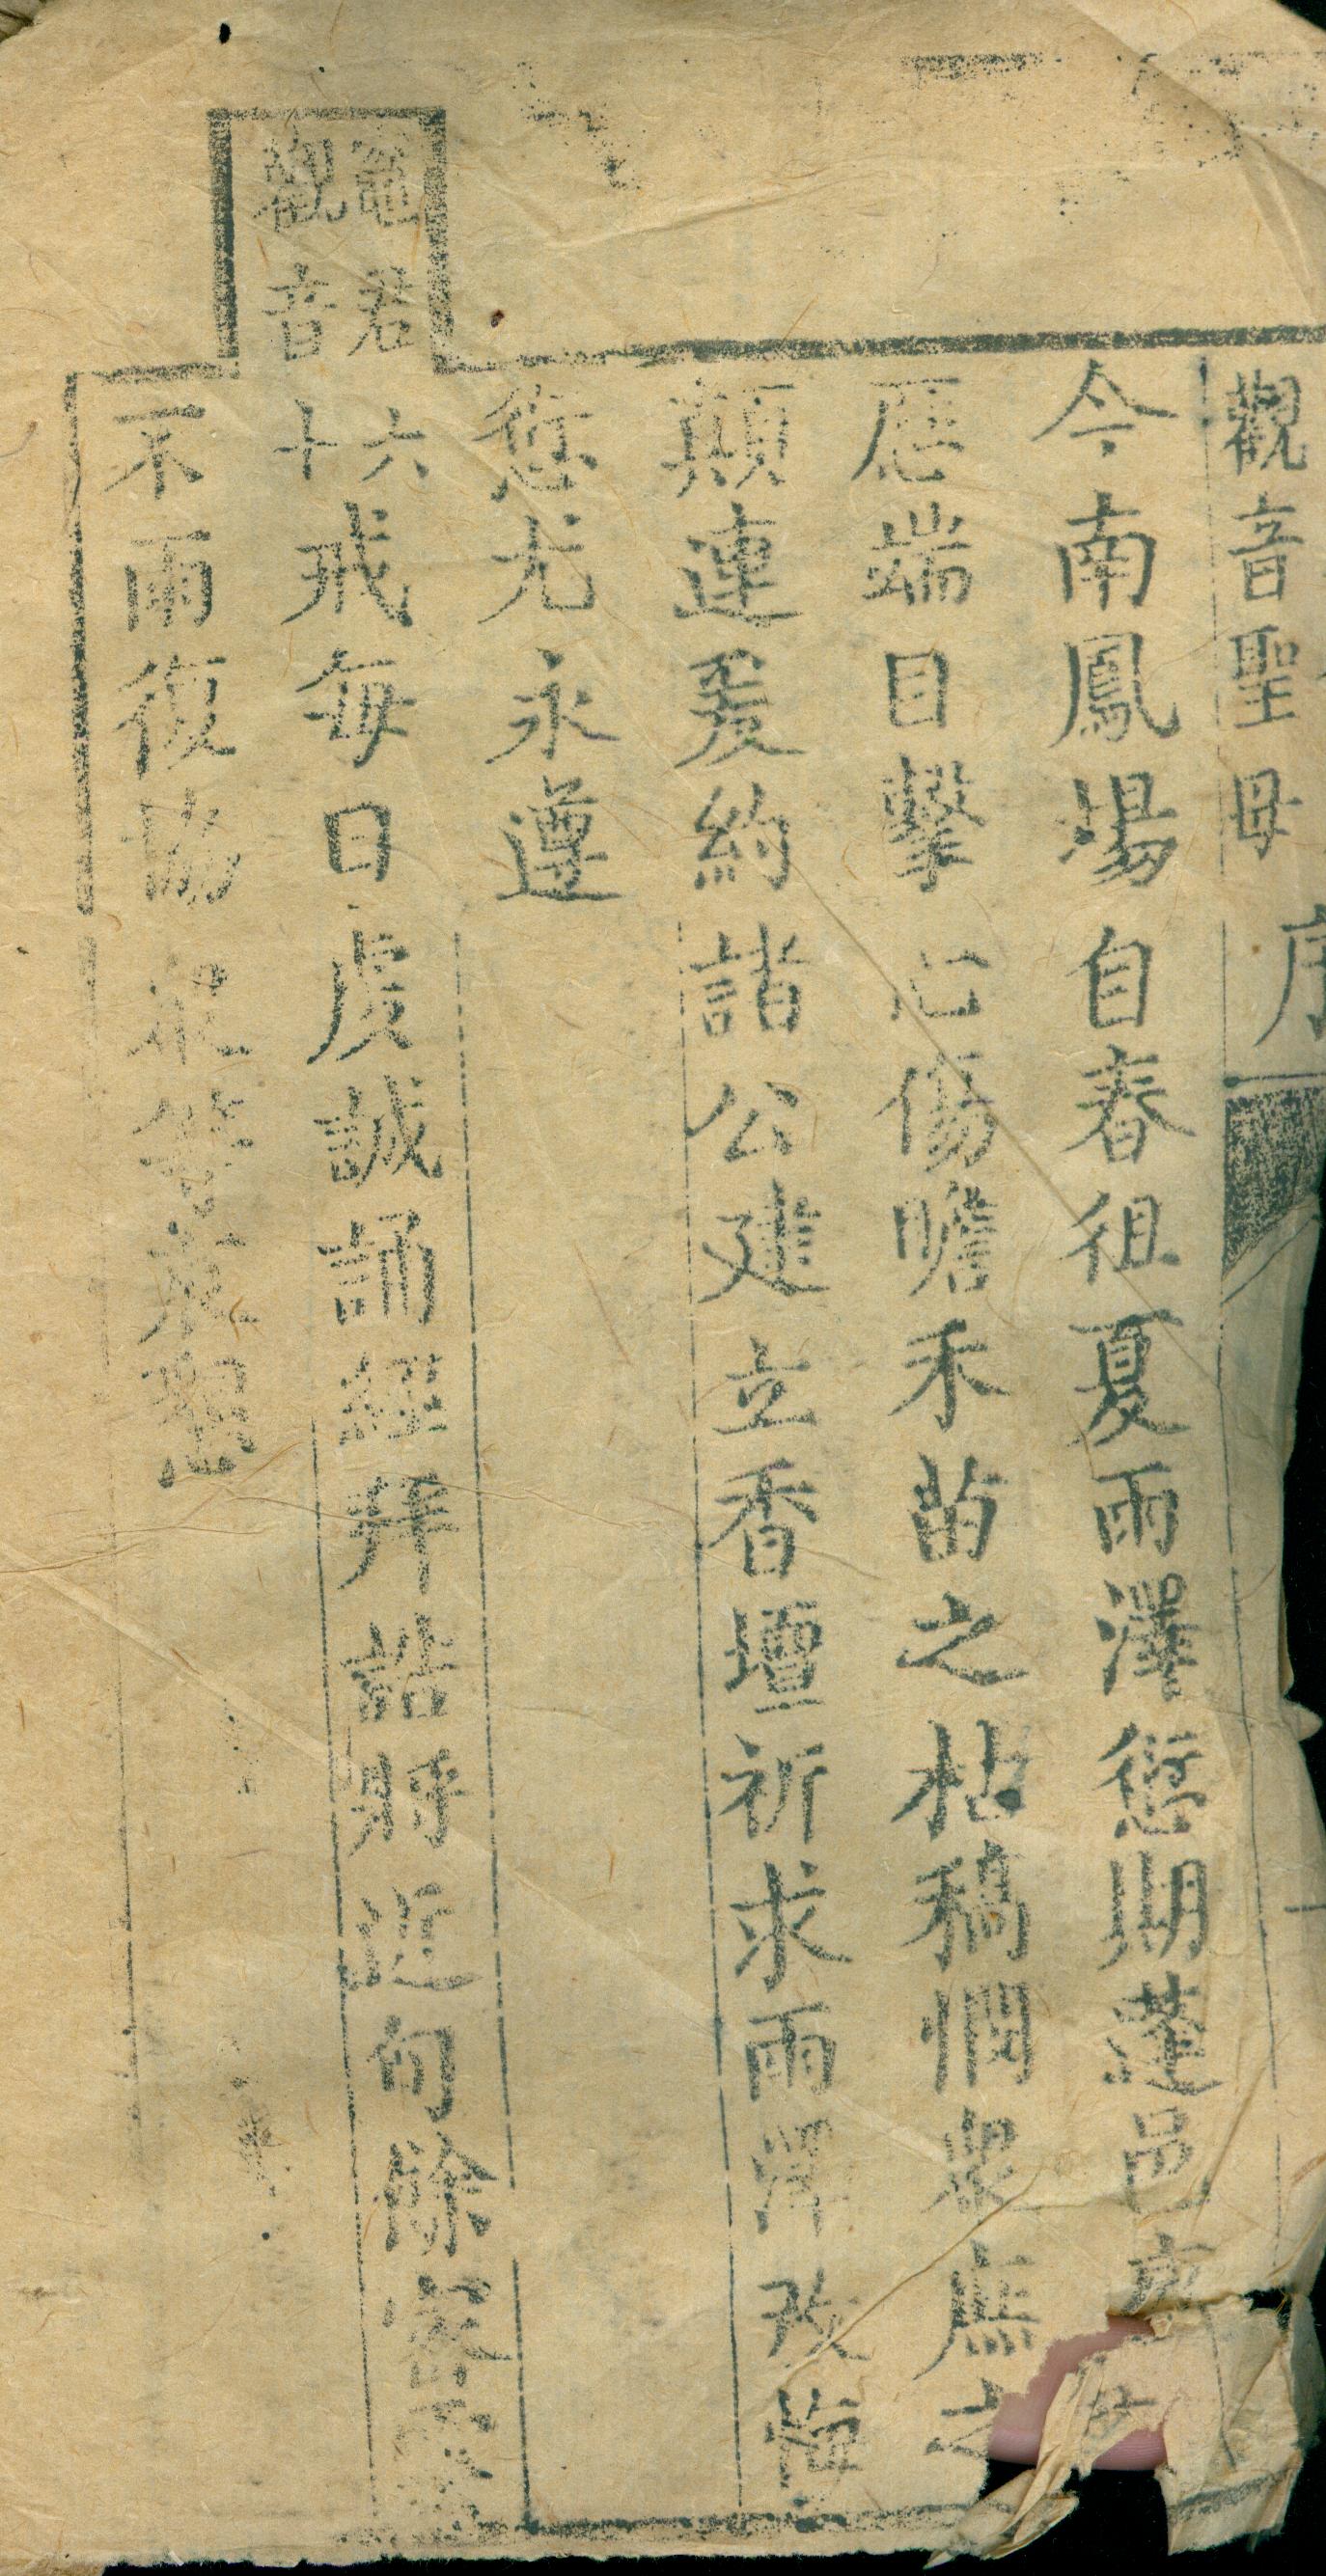 觀音聖母 序
今南鳳場自春徂夏雨澤愆期蓬邑
歷端目擊心傷瞻禾苗之枯稿憫衆庶之
顛連爰約諸公建立香壇祈求雨澤改悔
愆尤永遵
竈君六
觀音十
戒每日虔誠誦經拜誥將近旬餘
不雨復協衆等哀懇